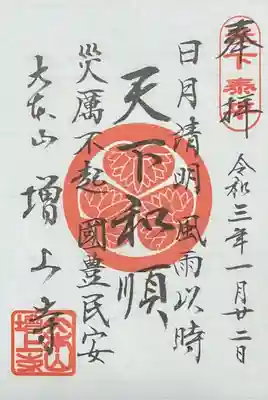 奉拝
令和三年一月廿二日
日月清明 風雨以時
天下和順
災厲不起 國豊民安
大本山 増上寺
大本山
増上寺